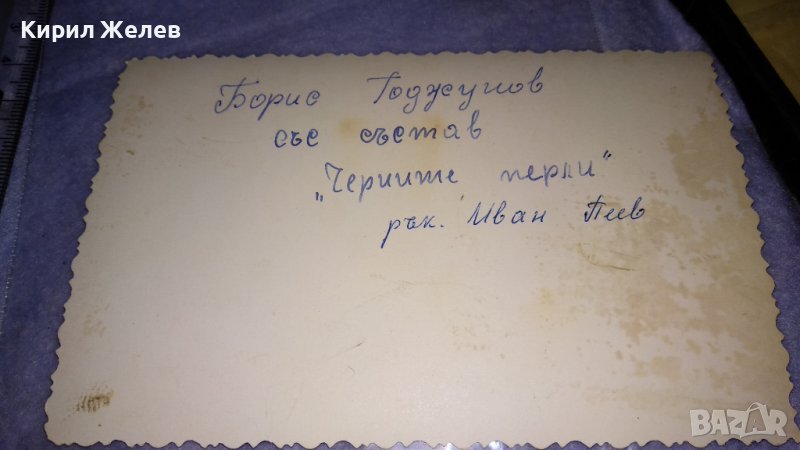 Кирил Желев
Борис Годжунов
със състав
„Черните перли"
рък. Иван Пеев
BAZAR